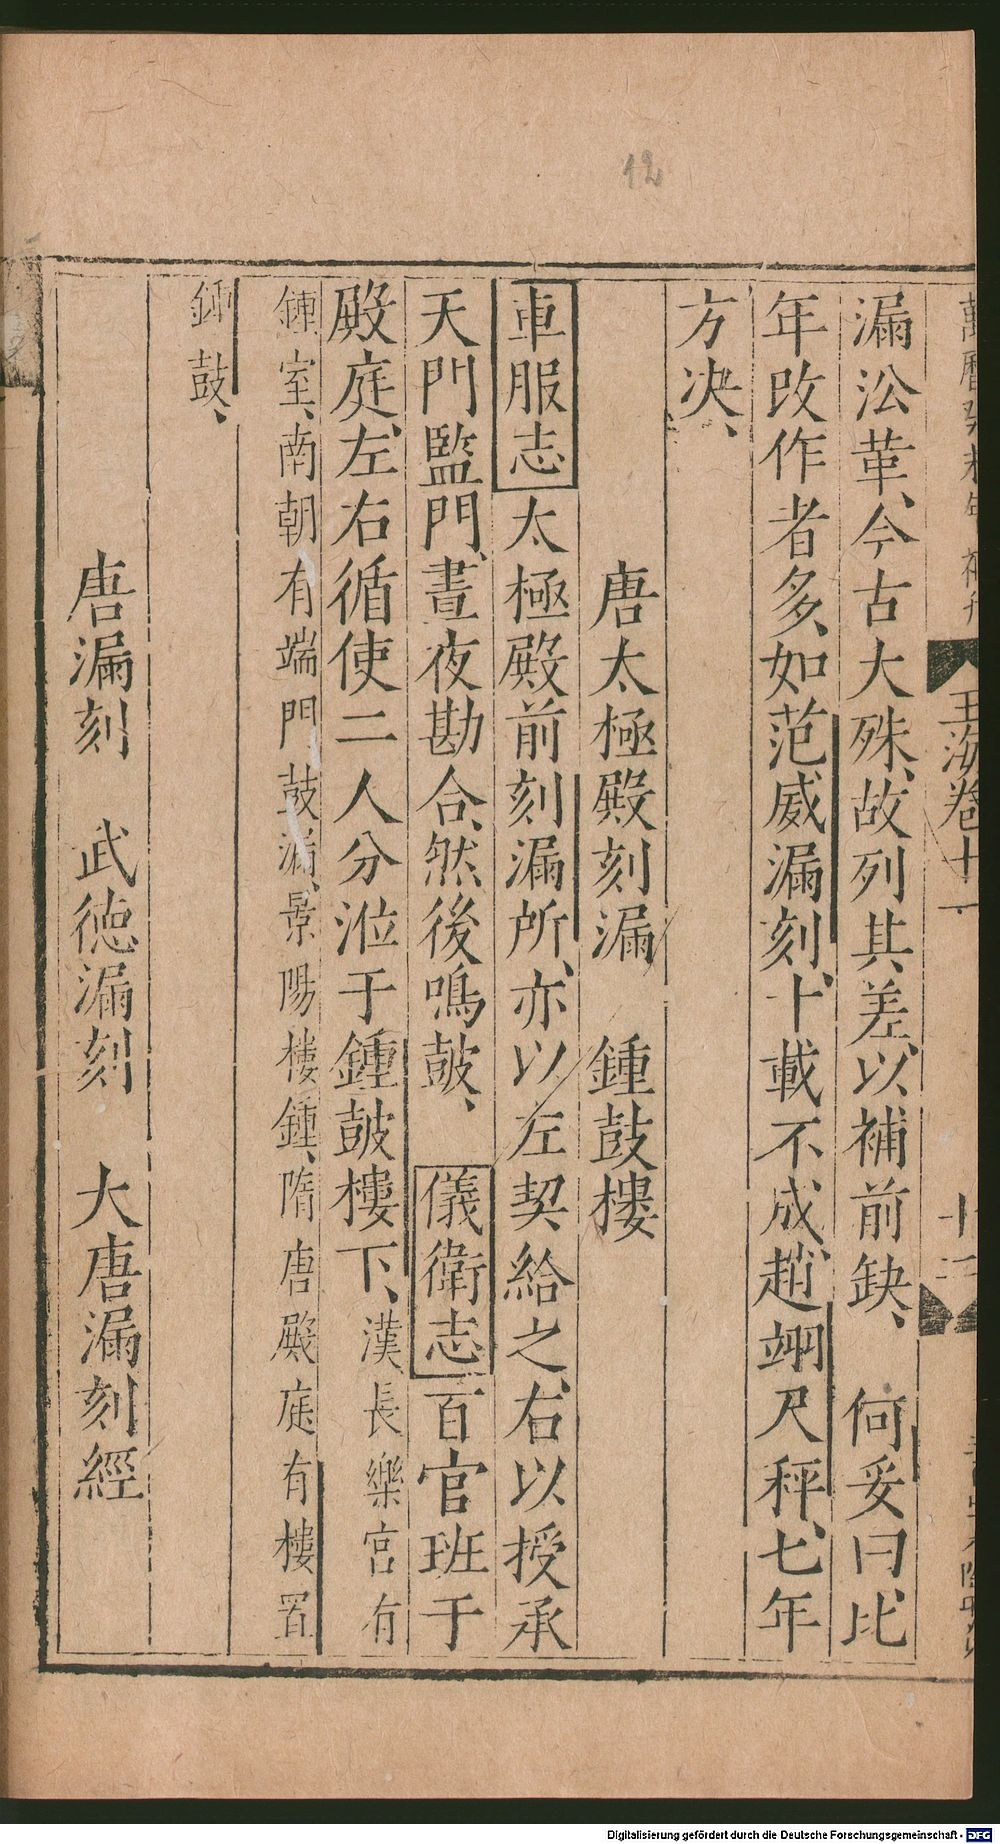 12
玉海卷十一
十二
漏㳂革、今古大殊、故列其差、以補前缺、 何妥曰、比
年改作者多、如范威漏刻、十載不成、趙翊尺秤、七年
方决、
唐太極殿刻漏 鍾鼓樓
車服志太極殿前刻漏所、亦以左契給之、右以授承
天門監門、晝夜勘合、然後鳴皷、 儀衛志百官班于
殿庭、左右循使二人分涖于鍾皷樓下、漢長樂宮有
鍾室、南朝有端門鼓漏、景陽樓鍾、隋唐殿庭有樓置
鍾鼓、
唐漏刻 武徳漏刻 大唐漏刻經
Digitalisierung gefördert durch die Deutsche Forschungsgemeinschaft - DFG